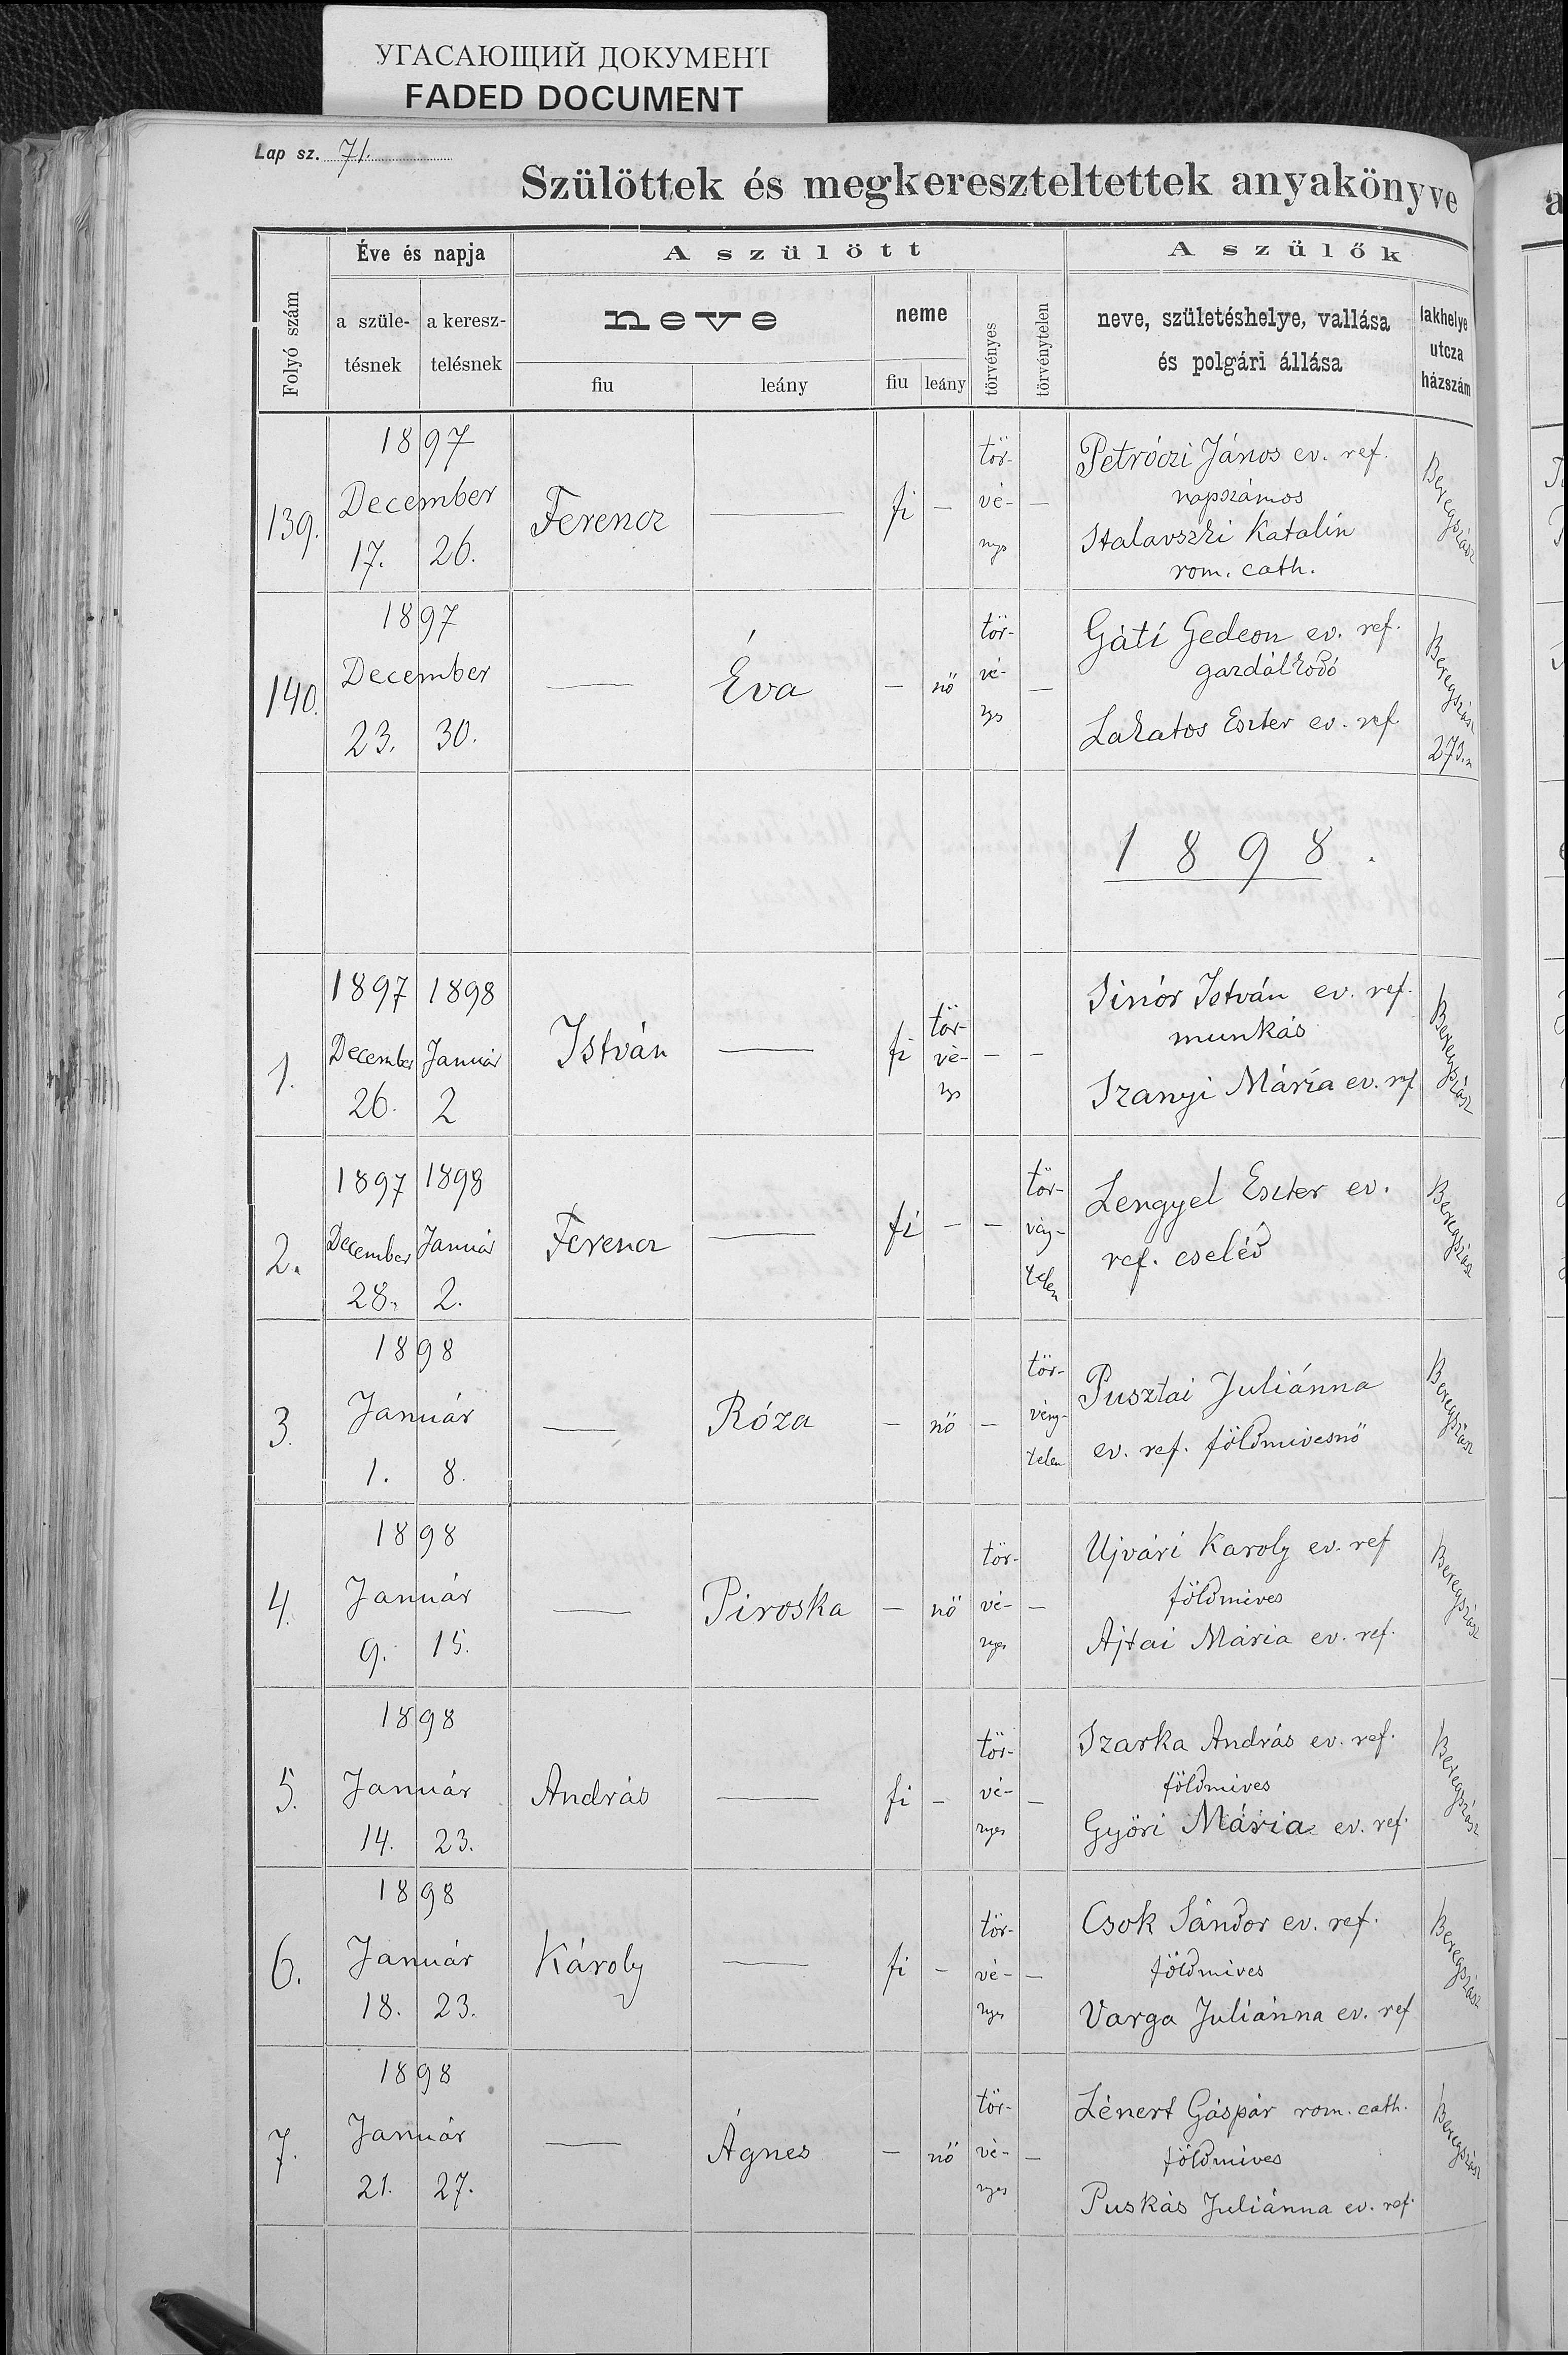 УГАСАЮЩИЙ ДОКУМЕНТ
FADED DOCUMENT
Lap sz. 71.
Szülöttek és megkereszteltettek anyakönyve
Folyó szám
Éve és napja
a szüle-
tésnek
a keresz-
telésnek
A szülött
neve
fiu
leány
neme
fiu
leány
törvényes
törvénytelen
A szülők
neve, születéshelye, vallása
és polgári állása
lakhelye
utcza
házszám
139.
1897
December
17. 26.
Ferencz
—
fi
—
tör-
vé-
nys
—
Petróczi János ev. ref.
napszámos
Stalavszki Katalin
rom. cath.
Beregszász
140.
1897
December
23. 30.
—
Éva
—
nö
tör-
vé-
nys
—
Gáti Gedeon ev. ref.
gazdálkodó
Lakatos Eszter ev. ref.
Beregszász
273.
1898.
1.
1897 1898
December Január
26. 2
István
—
fi
tör-
vé-
nys
—
—
Sinór István ev. ref.
munkás
Szanyi Mária ev. ref
Beregszász
2.
1897 1898
December Január
28. 2.
Ferencz
—
fi
—
—
tör-
vény-
telen
Lengyel Eszter ev.
ref. cseléd
Beregszász
3.
1898
Január
1. 8.
—
Róza
—
nö
—
tör-
vény-
telen
Pusztai Juliánna
ev. ref. földmivesnö
Beregszász
4.
1898
Január
9. 15.
—
Piroska
—
nö
tör-
vé-
nyes
—
Ujvári Karoly ev. ref
földmives
Ajtai Mária ev. ref.
Beregszász
5.
1898
Január
14. 23.
András
—
fi
—
tör-
vé-
nyes
—
Szarka András ev. ref.
földmives
Györi Mária ev. ref.
Beregszász
6.
1898
Január
18. 23.
Károly
—
fi
—
tör-
vé-
nyes
—
Csok Sándor ev. ref.
földmives
Varga Juliánna ev. ref
Beregszász
7.
1898
Január
21. 27.
—
Ágnes
—
nö
tör-
vé-
nyes
—
Lénert Gáspár rom. cath.
földmives
Puskás Juliánna ev. ref.
Beregszász